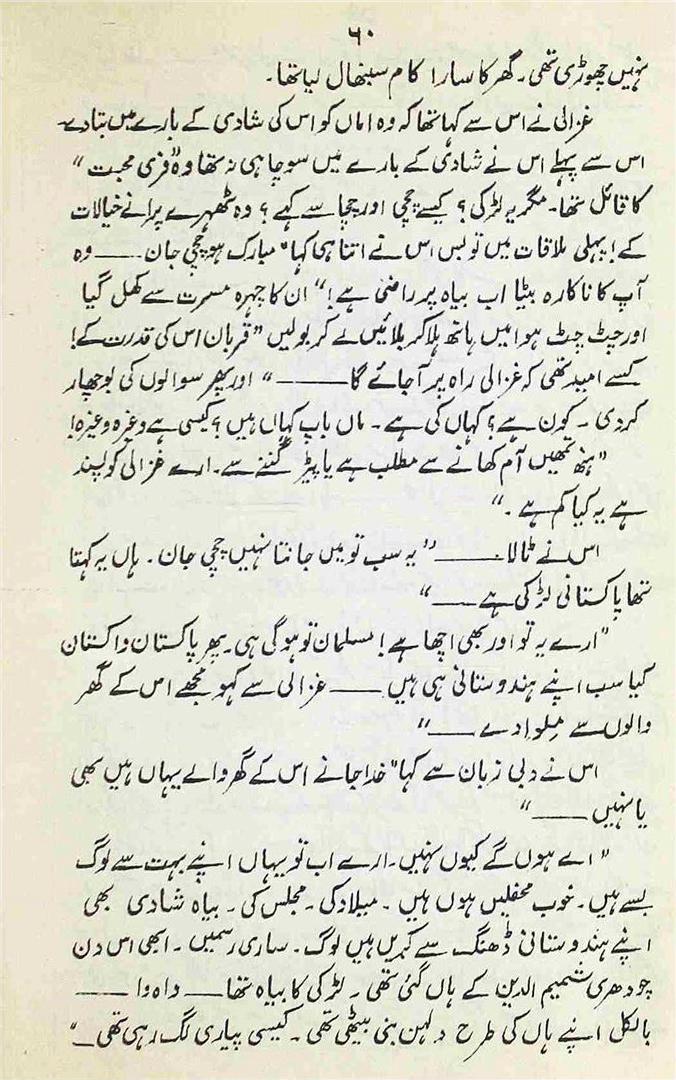 ۶۰
نہیں چھوڑی تھی۔ گھر کا سارا کام سنبھال لیا تھا۔
غزالی نے اس سے کہا تھا کہ وہ اماں کو اس کی شادی کے بارے میں بتا دے۔
اس سے پہلے اس نے شادی کے بارے میں سوچا ہی نہ تھا وہ "فری محبت"
کا قائل تھا۔ مگر یہ لڑکی؟ کیسے چچی اور چچا سے کہے؟ وہ ٹھہرے پرانے خیالات
کے! پہلی ملاقات میں تو بس اس نے اتنا ہی کہا "مبارک ہو چچی جان —— وہ
آپ کا ناکارہ بیٹا اب بیاہ پر راضی ہے!" ان کا چہرہ مسرت سے کھل گیا
اور چٹ چٹ ہوا میں ہاتھ ہلا کر بلائیں لے کر بولیں "قربان اس کی قدرت کے!
کسے امید تھی کہ غزالی راہ پر آ جائے گا ——" اور پھر سوالوں کی بوچھار
کر دی۔ کون ہے؟ کہاں کی ہے۔ ماں باپ کہاں ہیں؟ کیسی ہے وغیرہ وغیرہ!
"تمھیں آم کھانے سے مطلب ہے یا پیڑ گننے سے۔ ارے غزالی کو پسند
ہے یہ کیا کم ہے۔"
اس نے ٹالا —— "یہ سب تو میں جانتا نہیں چچی جان۔ ہاں یہ کہتا
تھا پاکستانی لڑکی ہے ——"
"ارے یہ تو اور بھی اچھا ہے! مسلمان تو ہوگی ہی۔ پھر پاکستان واکستان
کیا سب اپنے ہندوستانی ہی ہیں —— غزالی سے کہو مجھے اس کے گھر
والوں سے ملوا دے ——"
اس نے دبی زبان سے کہا "خدا جانے اس کے گھر والے یہاں ہیں بھی
یا نہیں ——"
"اے ہوں گے کیوں نہیں۔ ارے اب تو یہاں اپنے بہت سے لوگ
بسے ہیں۔ خوب محفلیں ہوں ہیں۔ میلاد کی۔ مجلس کی۔ بیاہ شادی بھی
اپنے ہندوستانی ڈھنگ سے کریں ہیں لوگ۔ ساری رسمیں۔ ابھی اس دن
چودھری شمیم الدین کے ہاں گئی تھی۔ لڑکی کا بیاہ تھا —— واہ وا ——
بالکل اپنے ہاں کی طرح دلہن بنی بیٹھی تھی۔ کیسی پیاری لگ رہی تھی۔—"